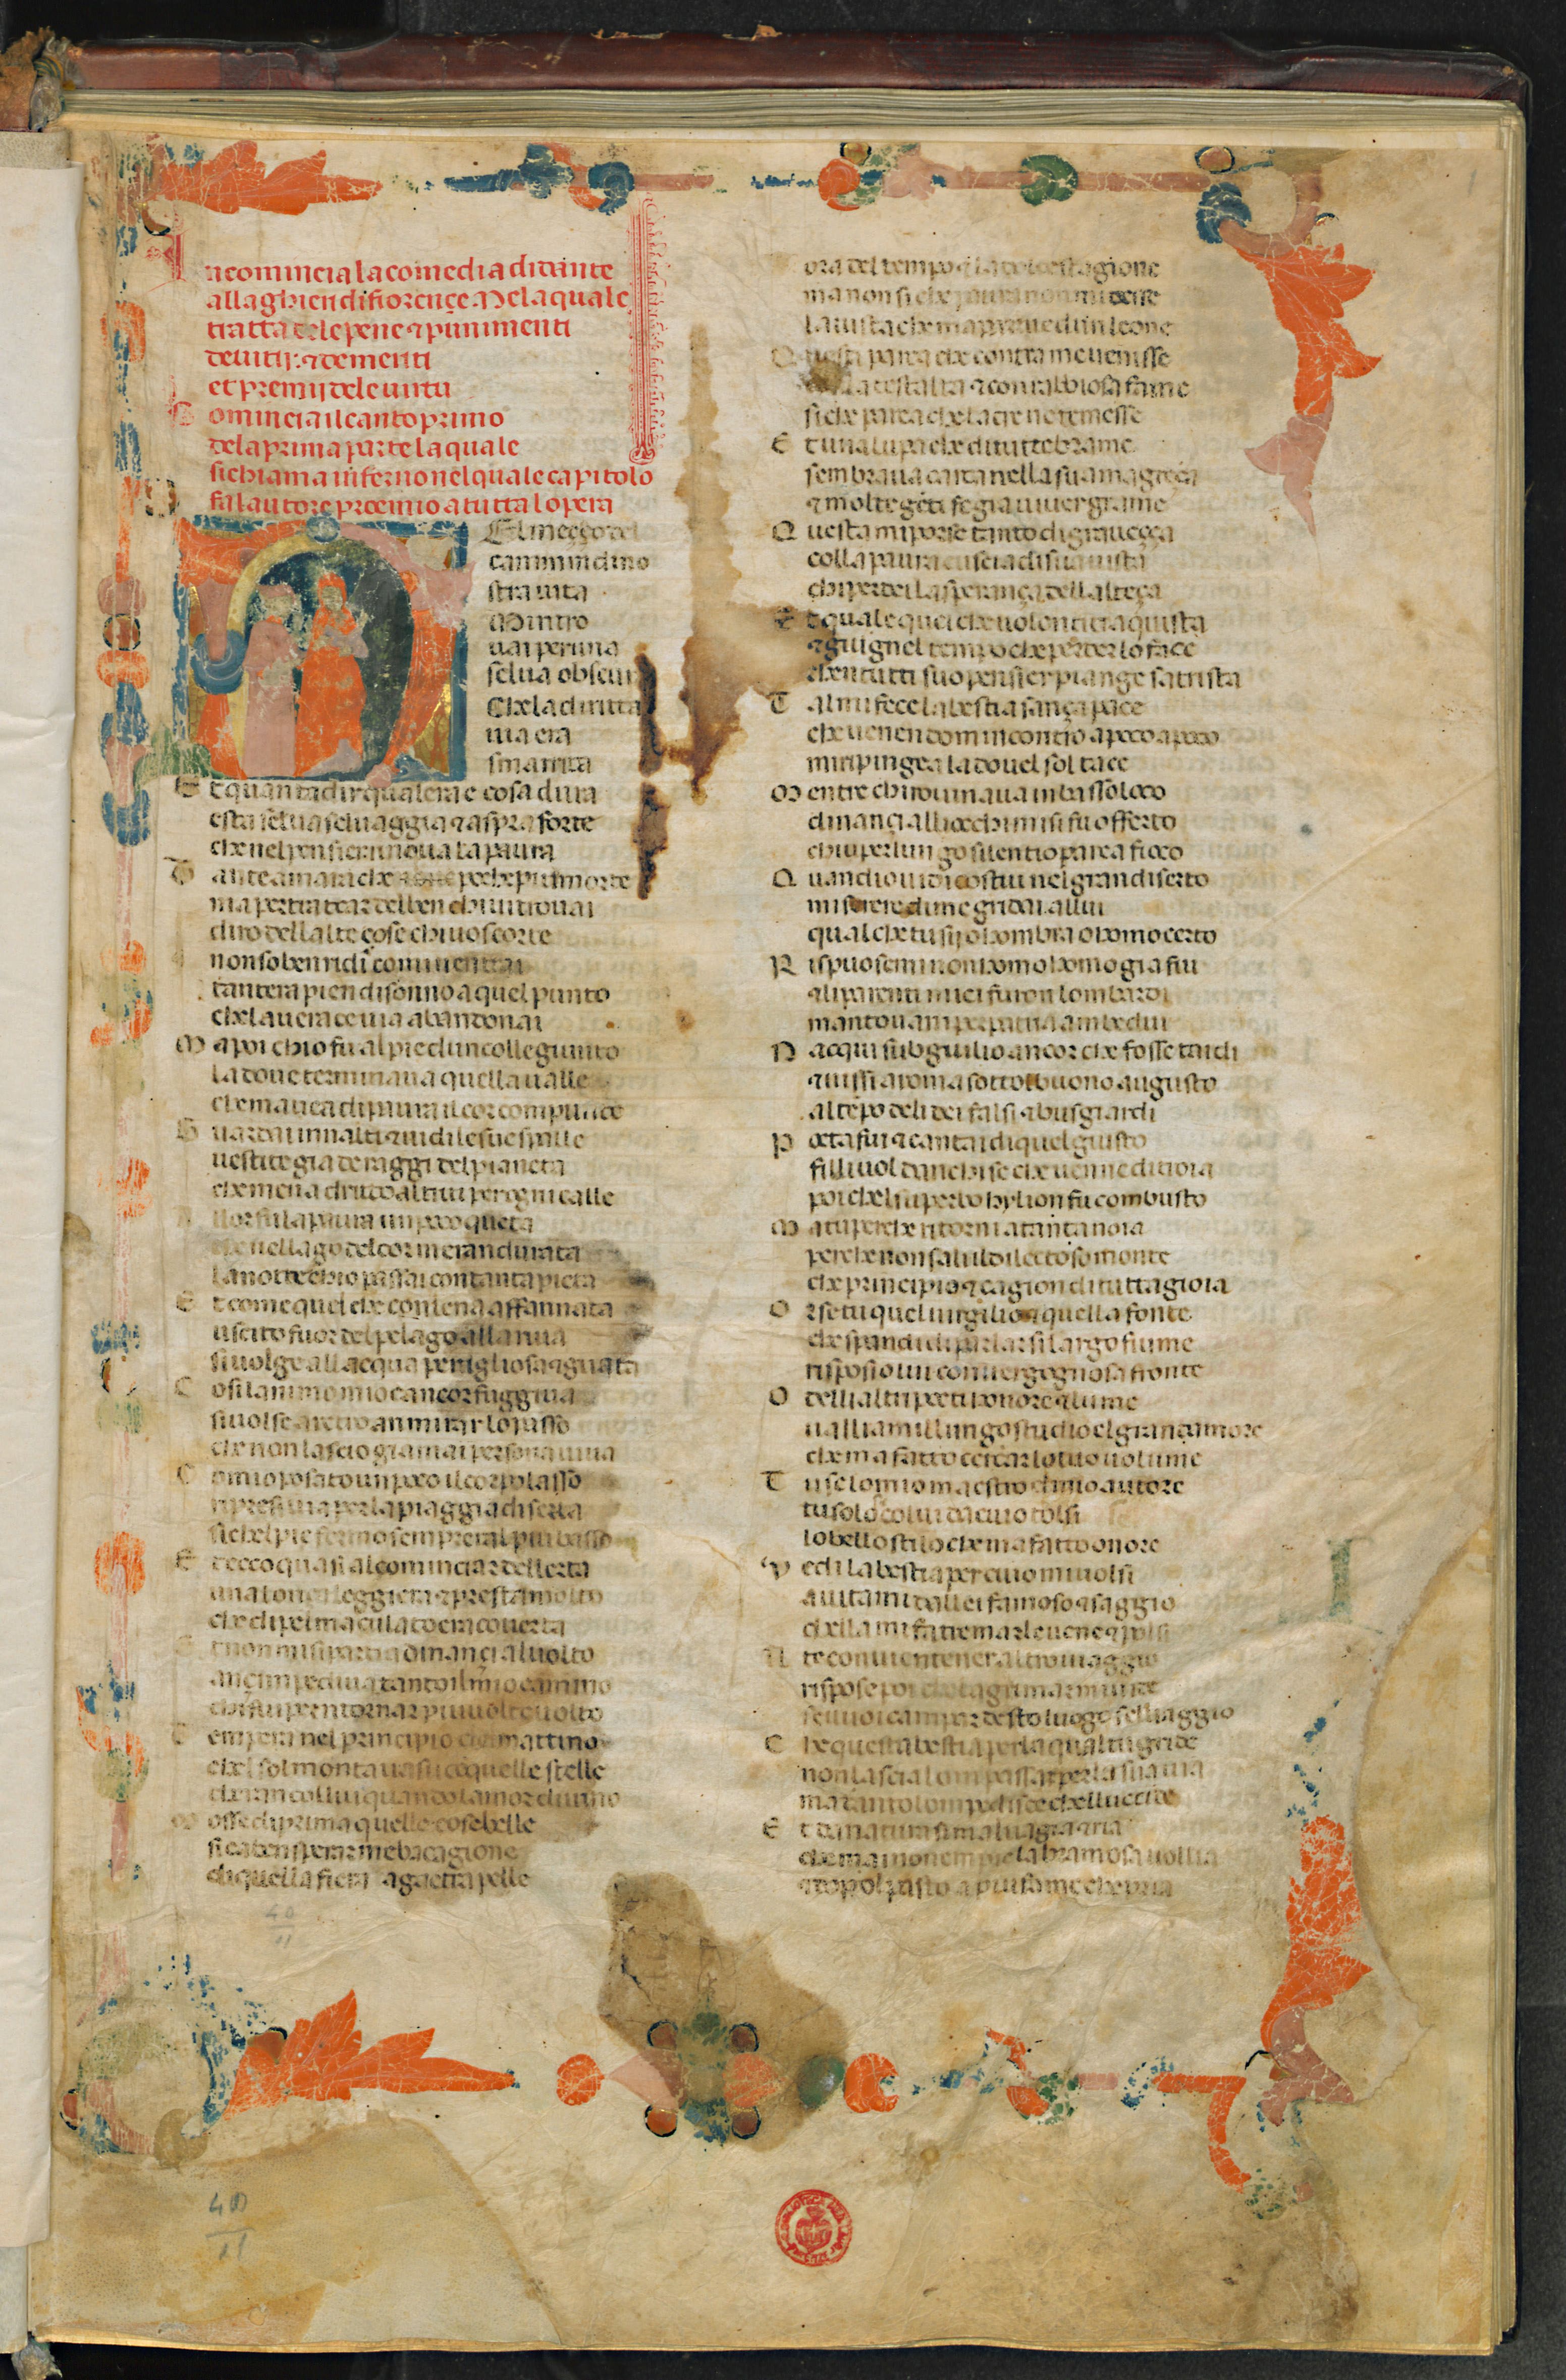 Incomincia la comedia di dante
allaghieri di fiorençe. Nela quale
tratta dele pene & punimenti
de uitij. & de meriti
et premij dele uirtu
Comincia il canto primo
dela prima parte la quale
si chiama inferno nel quale capitolo
fa lautore proemio a tutta lopera
NEl meççodel
cammindino
stra uita
Mi ritro
uai per una
selua obscur
Che la diritta
uia era
smarrita
Et quanta dir qual era e cosa dura
esta selua seluaggia & aspra & forte
che nel pensier rinoua la paura
Tante amara che poche piu morte
ma per tractar del ben chiui trouai
diro dellaltre cose chiuo scorte
I non so ben ridir commentrai
tantera pien di sonno a quel punto
che la uerace uia abandonai
Ma poi chio fu al pie dun colle giunto
la doue terminaua quella ualle
che mauea di paura il cor compunto
Guardai innalti & uidi le sue spalle
uestite gia de raggi del pianeta
che mena dricto altrui per ogni calle
Allor fu la paura un poco queta
che nel lago del cor mera durata
la notte chio passai con tanta pieta
Et come quei che con lena affannata
uscito fuor del pelago alla riua
si uolge allacqua perigliosa & guata
Cosi lanimo mio cancor fuggiua
si uolse a retro a rimirar lo passo
che non lascio giamai persona uiua
Comio posato un poco il corpo lasso
ripresi uia per la piaggia diserta
si chel pie fermo sempre ral piu basso
Et ecco quasi al cominciar dellerta
una lonça leggiera & presta molto
che di pel maculato era couerta
Et non mi si partia dinançi al uolto
ançi impediua tanto il mio camino
chi fui per ritornar piu uolte uolto
Temp era nel principio del mattino
el sol montaua su co quelle stelle
cheran collui quando lamor diuino
Mosse di prima quelle cose belle
si ca ben sperar mera cagione
di quella fiera a gaetta pelle
ora del tempo & la dolce stagione
ma non si che paura non mi desse
la uista che mapparue dun leone
Questi parea che contra me uenisse
colla testalta & con rabbiosa fame
si che parea che laere ne temesse
Et una lupa che di tutte brame
sembraua carca nella sua magreça
& molte gēti fe gia uiuer grame
Questa mi porse tanto di graueçça
colla paura cuscia di sua uista
chi perdei la sperança dellalteça
Et quale quei che uolontieri aquista
& giugnel tempo che perder lo face
chen tutti suo pensier piange satrista
Tal mi fece la bestia sança pace
che uenendommincontro a poco a poco
mi ripingea la douel sol tace
Mentre chi rouinaua in basso loco
dinançi alli ochi mi si fu offerto
chi per lungo silentio parea fioco
Quandio uidi costui nel gran diserto
miserere di me gridai allui
qual che tu sij o hombra o homo certo
Rispuosemi non homo homo gia fui
& li parenti miei furon lombardi
mantouani per patria ambedui
Nacqui sub giulio ancor che fosse tardi
& uissi a roma sottol buono augusto
al tēpo deli dei falsi & busgiardi
Poeta fui & cantai di quel giusto
figliuol danchise che uenne di troia
poi chel superbo hylion fu combusto
Ma tu perche ritorni a tanta noia
perche non sali il dilectoso monte
che principio & cagion di tutta gioia
Or se tu quel uirgilio & quella fonte
che spandi di parlar si largo fiume
risposio lui con uergognosa fronte
O delli altri poeti honore & lume
uagliami il lungo studio el grançamore
che ma fatto cercar lo tuo uolume
Tu se lo mio maestro el mio autore
tu solo colui da cui o tolsi
lo bello stilo che ma fatto onore
Vedi la bestia per cui io mi uolsi
aiutami da llei famoso & saggio
chella mi fa tremar le uene & polsi
A te conuien tener altro uiaggio
rispose poi che lagrimar mi uide
se uuoi campar desto luogo seluaggio
Che questa bestia per la qual tu gride
non lascia altrui passar per la sua uia
ma tanto lompedisce chelluccide
Et a natura si maluagia & ria
che mai non empie la bramosa uoglia
& dopol pasto a piu fame che pria